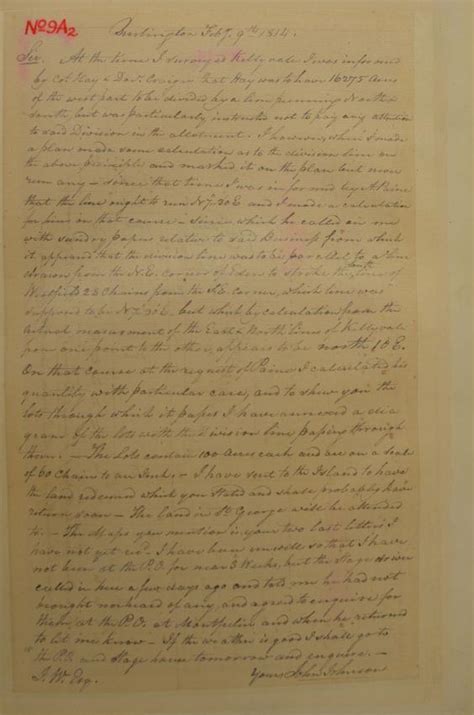 No 9A2
Burlington Feby. 9th 1814.
Sir. At the time I surveyed Kellyvale I was informed
by Col. Hay & Davd. Craig that Hay was to have 16275 Acres
of the west part to be divided by a line running North &
south, but was particularly instructed not to pay any attention
to said Division in the allotment. I however, when I made
a plan made some calculation as to the division line on
the above principle and marked it on the plan but never
run any – since that time I was informed by A Paine
that the line ought to run N.7.30 E and I made a calculation
for him on that course – Since which he called on me
with sundry papers relative to said Business from which
it appeared that the division line was to be parallel to a line
drawn from the N.E. corner of Eden to stroke the South line of
Westfield 28 Chains from the S.E. corner, which line was
supposed to be N.7.30 E. but which by calculation from the
actual measurement of the East & North lines of Kellyvale
from one point to the other, appears to be north 10 E.
On that course at the request of Paine I calculated his
quantity with particular care, and to shew you the
lots through which it passes I have annexed a dia
gram of the lots with the division line passing through
them. – The Lots contain 100 Acres each and are on a scale
of 60 Chains to an Inch – I have sent to the Island to have
the land redeemed which you stated and shall probably have
return soon – The land in St. George will be attended
to. – The Maps you mention in your two last letters I
have not yet recd. I have been unwell so that I have
not been at the P.O. for near 3 Weeks, but the Stage driver
called in here a few days ago and told me he had not
brought nor heard of any, and agreed to enquire for
them, at the P.O. at Montpelier and when he returned
to let me know – If the weather is good I shall go to
the P.O. and Stage house tomorrow and enquire. –
J. W. Esq. Yours John Johnson